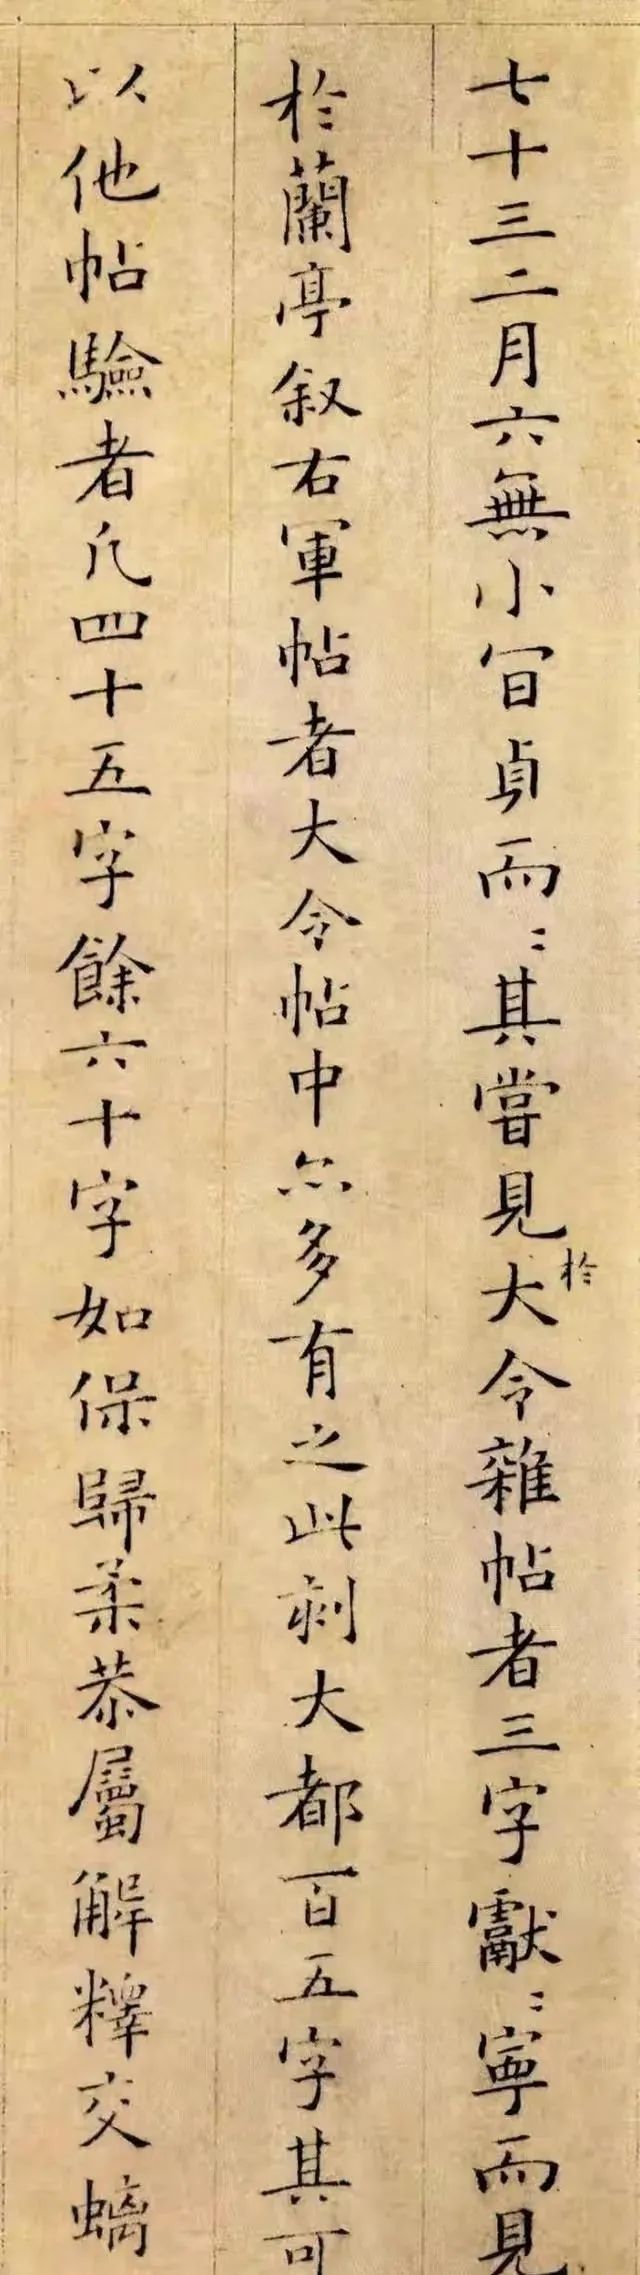 七十三二月六無小百貞而〻其嘗見於大令雜帖者三字獻〻寧而見
於蘭亭叙右軍帖者大令帖中亦多有之此刻大都百五字其可
以他帖驗者凡四十五字餘六十字如保歸柔恭屬解釋交螭